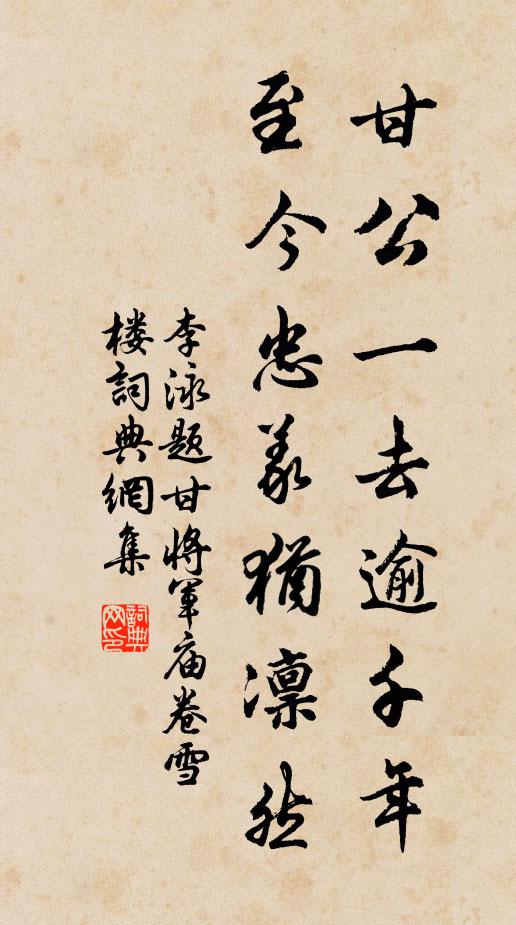 甘公一去逾千年
至今忠義猶凛然
李泳题甘将军庙卷雪
楼詞典網集
詞典网印